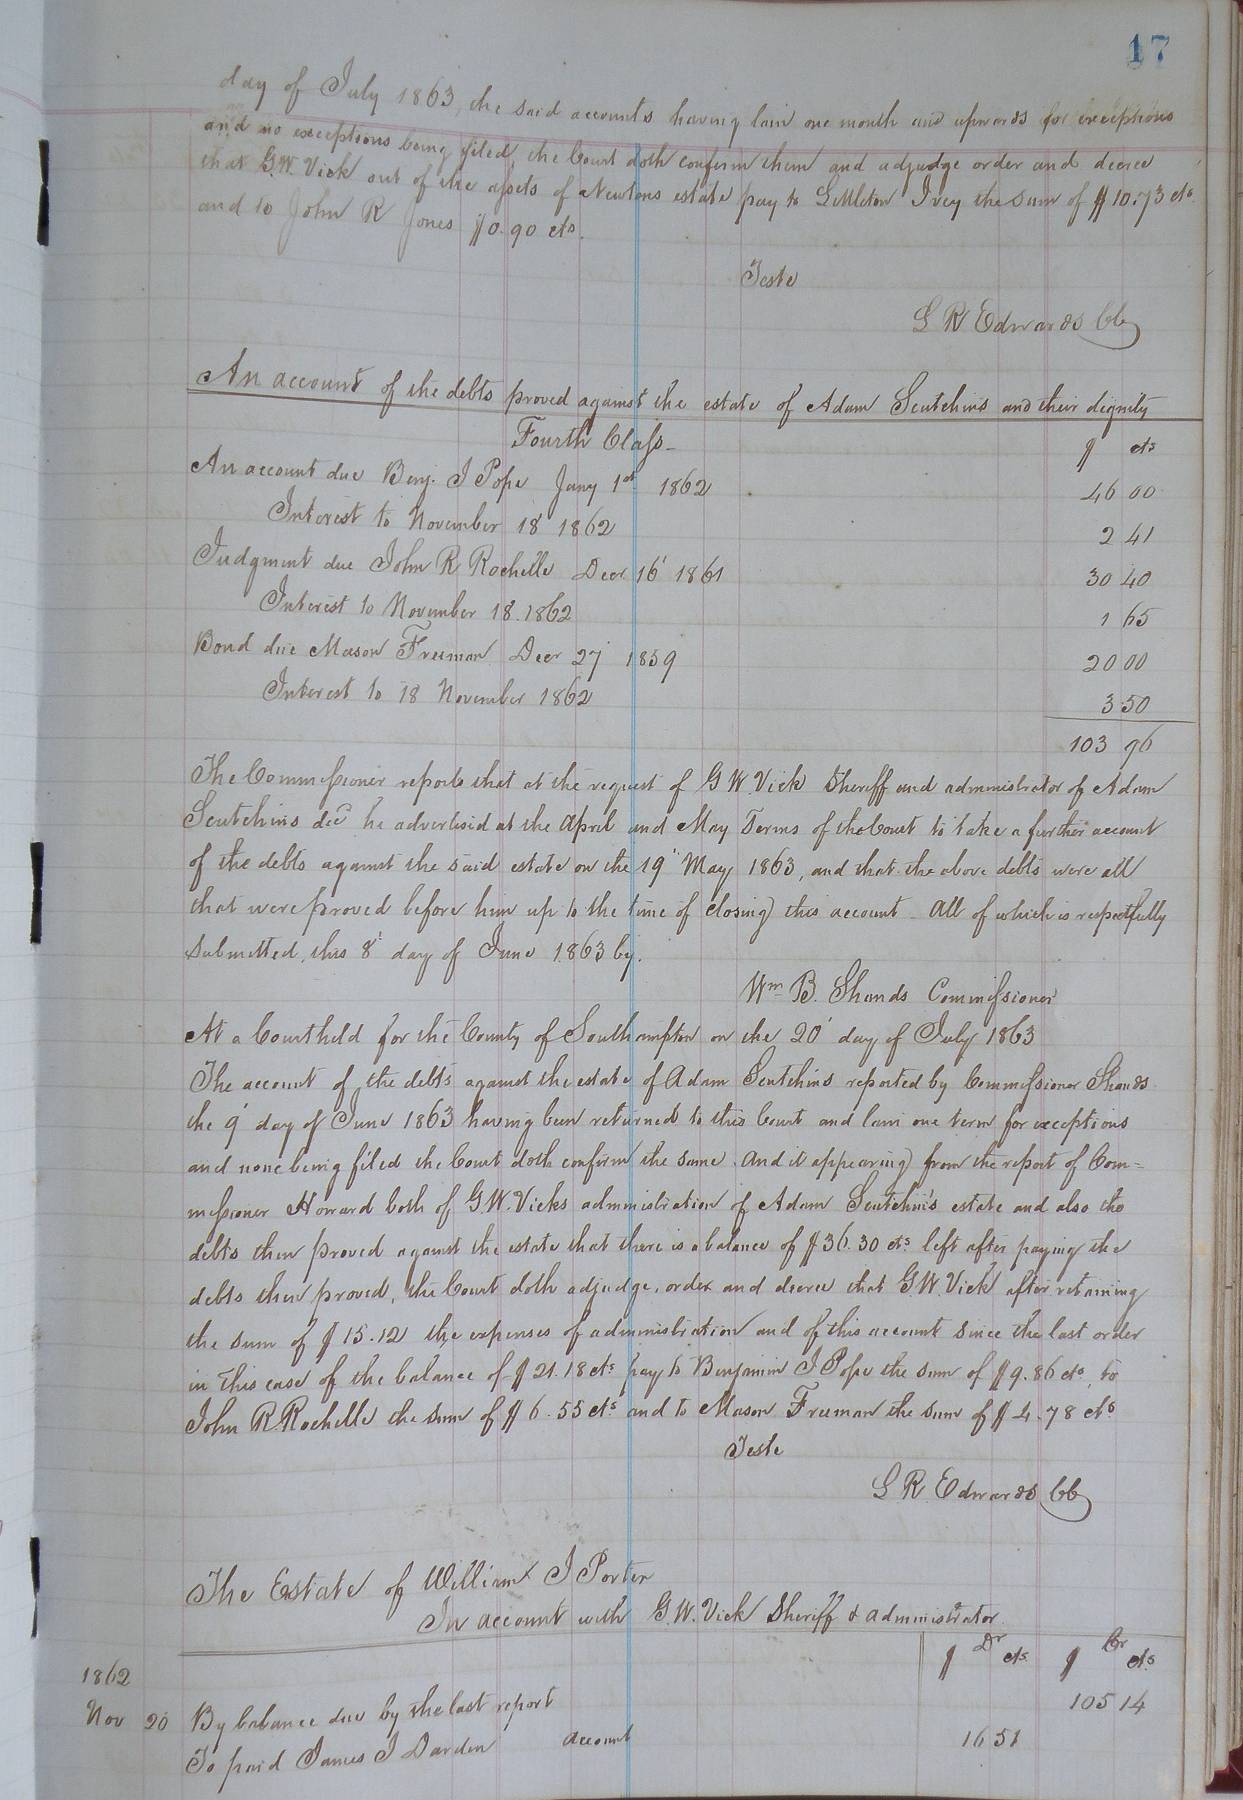 17
day of July 1863, the said accounts having lain one month and upwards for exceptions
and no exceptions being filed, the Court doth confirm them and adjudge order and decree
that G.W. Vick out of the assets of Newtons estate pay to Littleton Ivey the sum of $10.73 cts
and to John R Jones $0.90 cts.
Teste
L R Edwards Clk
An account of the debts proved against the estate of Adam Scutchins and their dignity
Fourth Class
$ cts
An account due Benj. I Pope Jany 1st 1862 46 00
Interest to November 18 1862 2 41
Judgment due John R Rochelle Decr 16 1861 30 40
Interest to November 18. 1862 1 65
Bond due Mason Freeman Decr 27 1859 20 00
Interest to 18 November 1862 3 50
103 96
The Commissioner reports that at the request of G W. Vick Sheriff and administrator of Adam
Scutchins decd he advertised at the April and May Terms of the Court to take a further account
of the debts against the said estate on the 19 May 1863, and that the above debts were all
that were proved before him up to the time of closing this account. All of which is respectfully
submitted, this 8 day of June 1863 by.
Wm B. Shands Commissioner
At a Court held for the County of Southampton on the 20 day of July 1863
The account of the debts against the estate of Adam Scutchins reported by Commissioner Shands
the 9 day of June 1863 having been returned to this Court and lain one term for exceptions
and none being filed the Court doth confirm the same. And it appearing from the report of Com=
missioner Howard both of G.W. Vicks administration of Adam Scutchin's estate and also the
debts then proved against the estate that there is a balance of $36.30 cts left after paying the
debts then proved, the Court doth adjudge, order and decree that G.W. Vick after retaining
the sum of $15.12 the expenses of administration and of this account since the last order
in this case of the balance of $21.18 cts pay to Benjamin I Pope the sum of $9.86 cts, to
John R. Rochelle the sum of $6.55 cts and to Mason Freeman the sum of $4.78 cts
Teste
L R. Edwards Clk
The Estate of William I Porter
In account with G.W. Vick Sheriff & administrator
$ Dr cts $ Cr cts
1862
Nov 20 By balance due by the last report 105 14
To paid James I Darden account 16 51